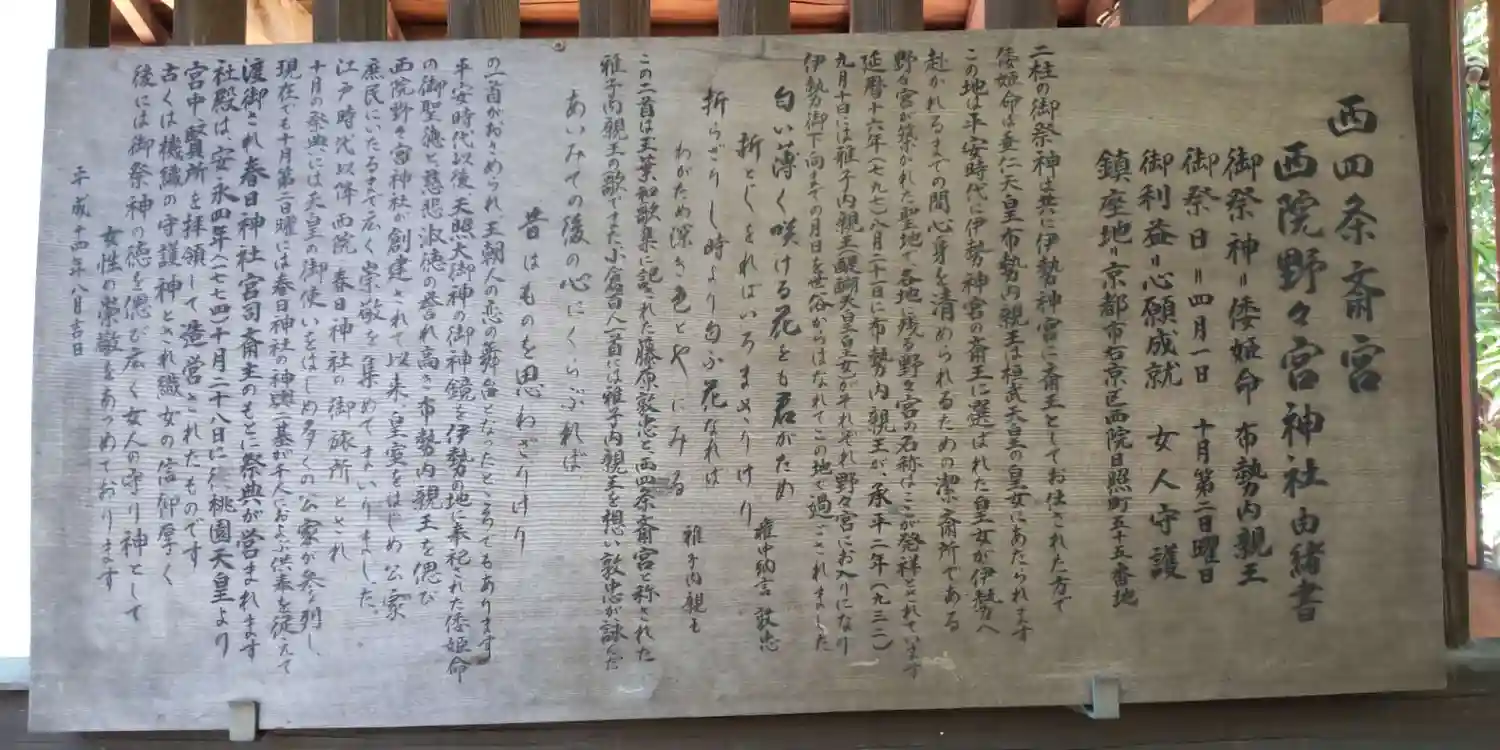 西四条斎宮
西院野々宮神社由緒書
御祭神＝倭姫命 布勢内親王
御祭日＝四月一日 十月第二日曜日
御利益＝心願成就 女人守護
鎮座地＝京都市右京区西院日照町五十五番地
二柱の御祭神は共に伊勢神宮に斎王としてお仕された方で
倭姫命は垂仁天皇布勢内親王は桓武天皇の皇女にあたられます
この地は平安時代に伊勢神宮の斎王に選ばれた皇女が伊勢へ
赴かれるまでの間心身を清められるための潔斎所である
野々宮が築かれた聖地で各地に残る野々宮の名称はここが発祥とされています
延暦十六年（七九七）八月二十一日に布勢内親王が、承平二年（九三二）
九月十日には雅子内親王（醍醐天皇皇女）がそれぞれ野々宮にお入りになり
伊勢御下向までの月日を世俗からはなれてこの地で過ごされました
匂い薄く咲ける花をも君がため
折としをればいろまさりけり
権中納言 敦忠
折らざりし時より匂ふ花なれば
わがため深き色とや にみる
雅子内親王
この二首は玉葉和歌集に記された藤原敦忠と西四条斎宮と称された
雅子内親王の歌ですまた小倉百人一首には雅子内親王を想い敦忠が詠んだ
あいみての後の心にくらぶれば
昔はものを思わざりけり
の一首がおさめられ王朝人の恋の舞台となったところでもあります
平安時代以後天照大御神の御神鏡を伊勢の地に奉祀された倭姫命
の御聖徳と慈悲淑徳の誉れ高き布勢内親王を偲び
西院野々宮神社が創建されて以来、皇室をはじめ公家
庶民にいたるまで広く崇敬を集めてまいりました。
江戸時代以降西院 春日神社の御旅所とされ
十月の祭典には天皇の御使いをはじめ多くの公家が参列し
現在でも十月第二日曜には春日神社の神輿二基が千人におよぶ供奉を従えて
渡御され春日神社宮司斎主のもとに祭典が営まれます
社殿は、安永四年（一七七四）十月二十八日に後桃園天皇より
宮中、賢所を拝領して造営されたものです
古くは機織の守護神とされ織女の信仰厚く
後には御祭神の徳を偲び広く女人の守り神として
女性の崇敬をあつめております
平成十四年八月吉日